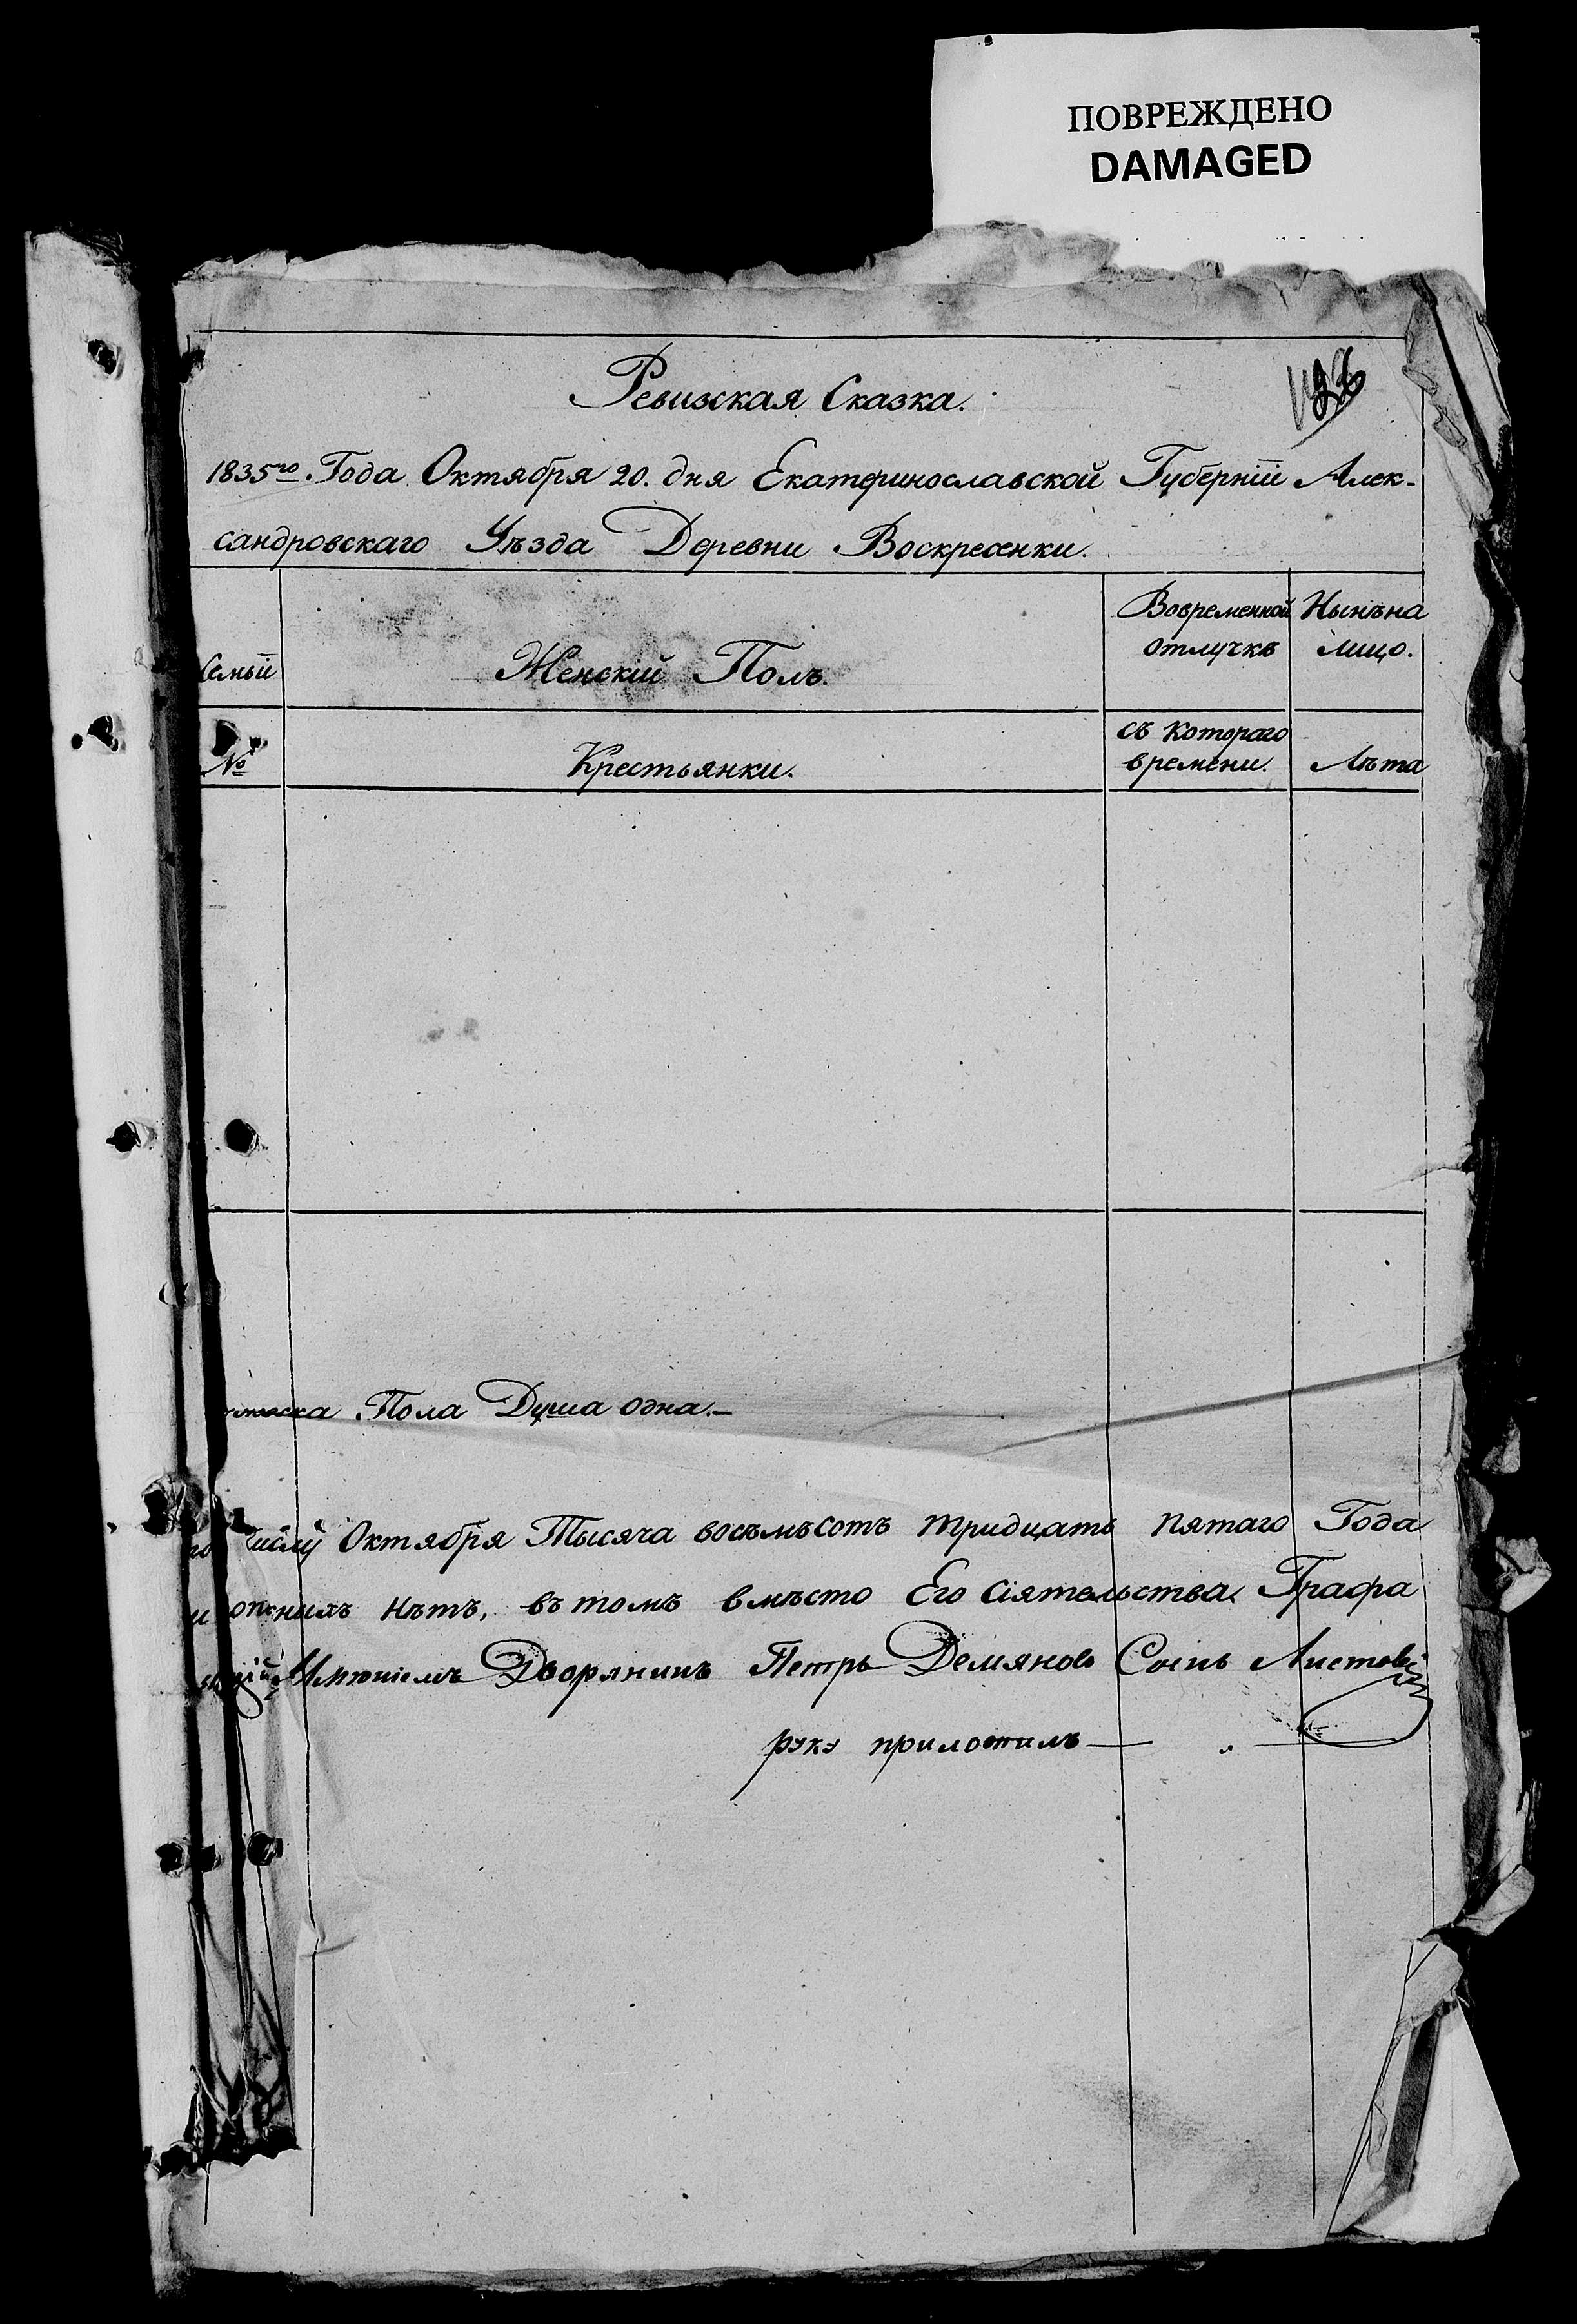 ПОВРЕЖДЕНО
DAMAGED
Ревизская Сказка.
1835го. Года Октября 20. дня Екатеринославской Губерніи Алек-
сандровскаго Уѣзда Деревни Воскресенки.
Семьи
Женскій Полъ.
Вовременной
отлучкѣ
Нынѣна
лицо.
№
Крестьянки.
съ котораго
времени.
Лѣта
Пола Душа одна.—
числу Октября Тысяча восъмъсотъ тридцать пятаго Года
нѣтъ, въ томъ вмѣсто Его сіятельства Графа
Имѣніемъ Дворянинъ Петръ Демяновъ Сынъ
руку приложилъ